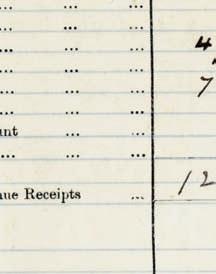 ... ... ...
... ... ...
... ... ... 4
... ... ...
... ... ... 7
... ... ...
unt ... ...
... ... ...
nue Receipts ... 12